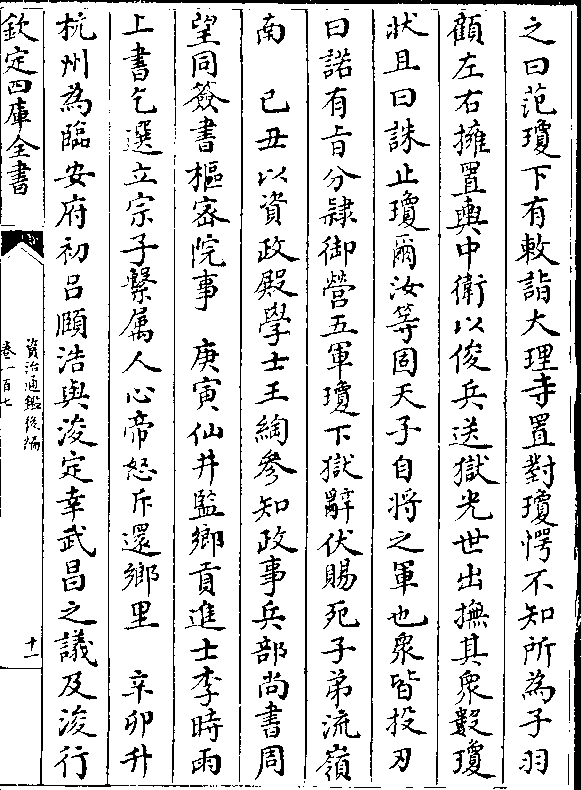 之曰范瓊下有敕詣大理寺置對瓊愕不知所為子羽
顧左右擁置輿中衛以俊兵送獄光世出撫其衆數瓊
狀且曰誅止瓊爾汝等固天子自將之軍也衆皆投刃
曰諾有旨分隸御營五軍瓊下獄辭伏賜死子弟流嶺
南　己丑以資政殿學士王綯參知政事兵部尚書周
望同簽書樞密院事　庚寅仙井監鄉貢進士李時雨
上書乞選立宗子繫属人心帝怒斥還鄉里　辛卯升
杭州為臨安府初吕頤浩與浚定幸武昌之議及浚行
欽定四庫全書
資治通鑑後編
卷一百七
十一